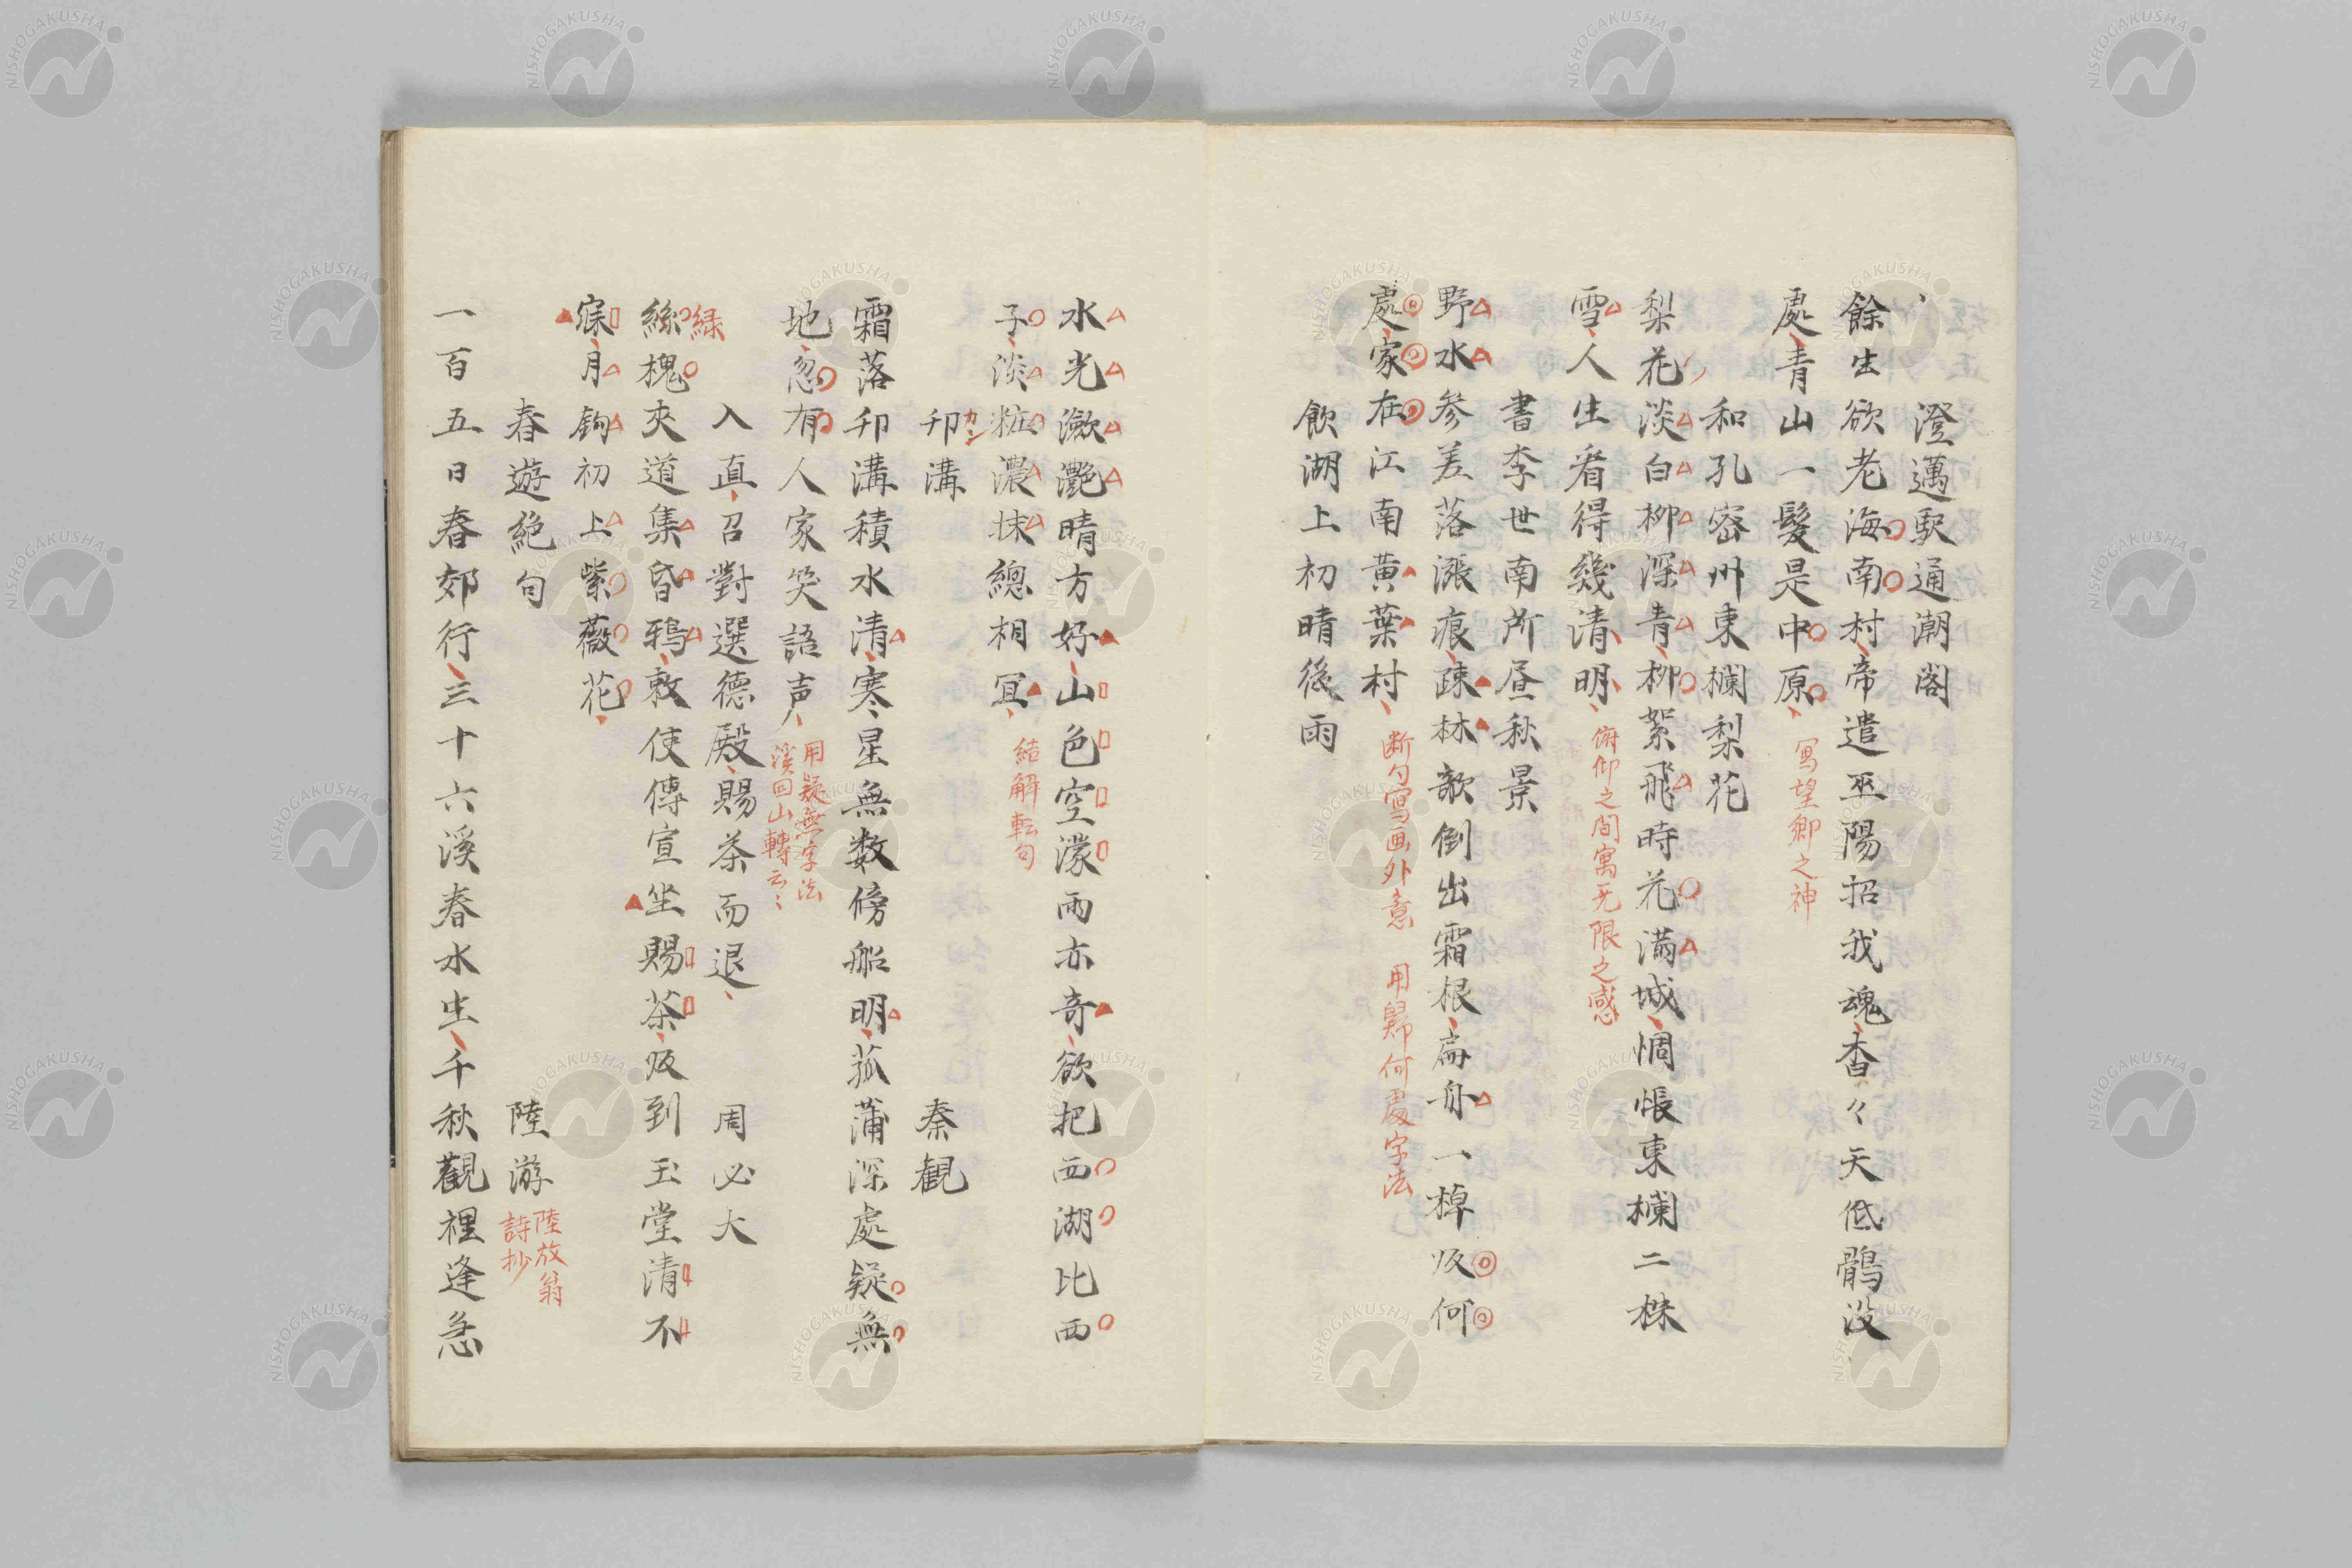 澄邁駅通潮閣
餘生欲老海南村帝遣巫陽招我魂杳々天低鶻没
處青山一髮是中原
写望郷之神
和孔密州東欄梨花
梨花淡白柳深青柳絮飛時花満城惆悵東欄二株
雪人生看得幾清明
俯仰之間寓无限之感
書李世南所昼秋景
野水参差落漲痕疎林欹倒出霜根扁舟一棹皈何
處家在江南黄葉村
断句写画外意 用歸何處字法
飲湖上初晴後雨
水光瀲灔晴方好山色空濛雨亦奇欲把西湖比西
子淡粧濃抹總相冝
結解転句
邗溝 秦観
カン
霜落邗溝積水清寒星無数傍船明菰蒲深處疑無
地忽有人家笑語声
用疑無字法
溪回山轉云々
入直召對選德殿賜茶而退 周必大
緑
絲槐夾道集昏鴉敕使傳宣坐賜茶皈到玉堂清不
寐月鉤初上紫薇花
春遊絶句 陸游
陸放翁
詩抄
一百五日春郊行三十六溪春水生千秋觀裡逢急
NISHOGAKUSHA